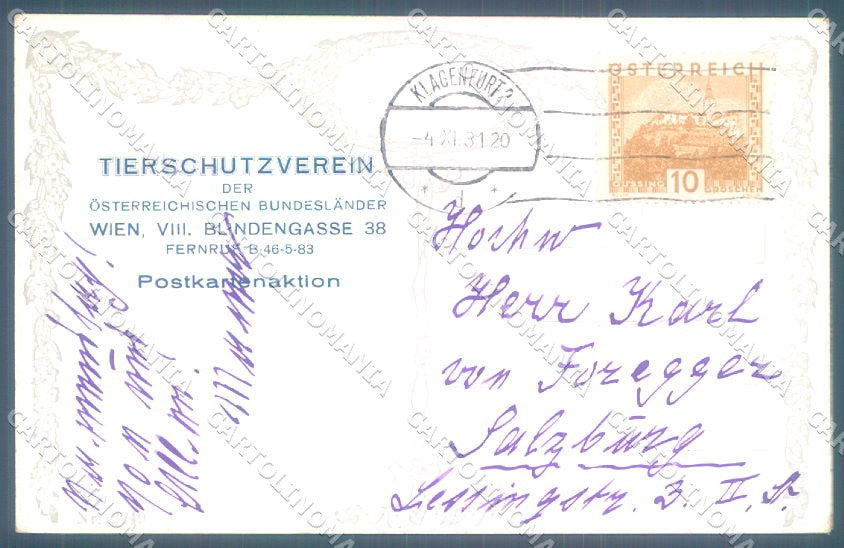 TIERSCHUTZVEREIN
DER
ÖSTERREICHISCHEN BUNDESLÄNDER
WIEN, VIII. BLINDENGASSE 38
FERNRUF B-46-5-83
Postkartenaktion
KLAGENFURT 2
-4.XI.31 20
ÖSTERREICH
GÜSSING
10
GROSCHEN
Hochw
Herr Karl
von Foregger
Salzburg
Lessingstr. 3. II. St.
CARTOLINOMANIA